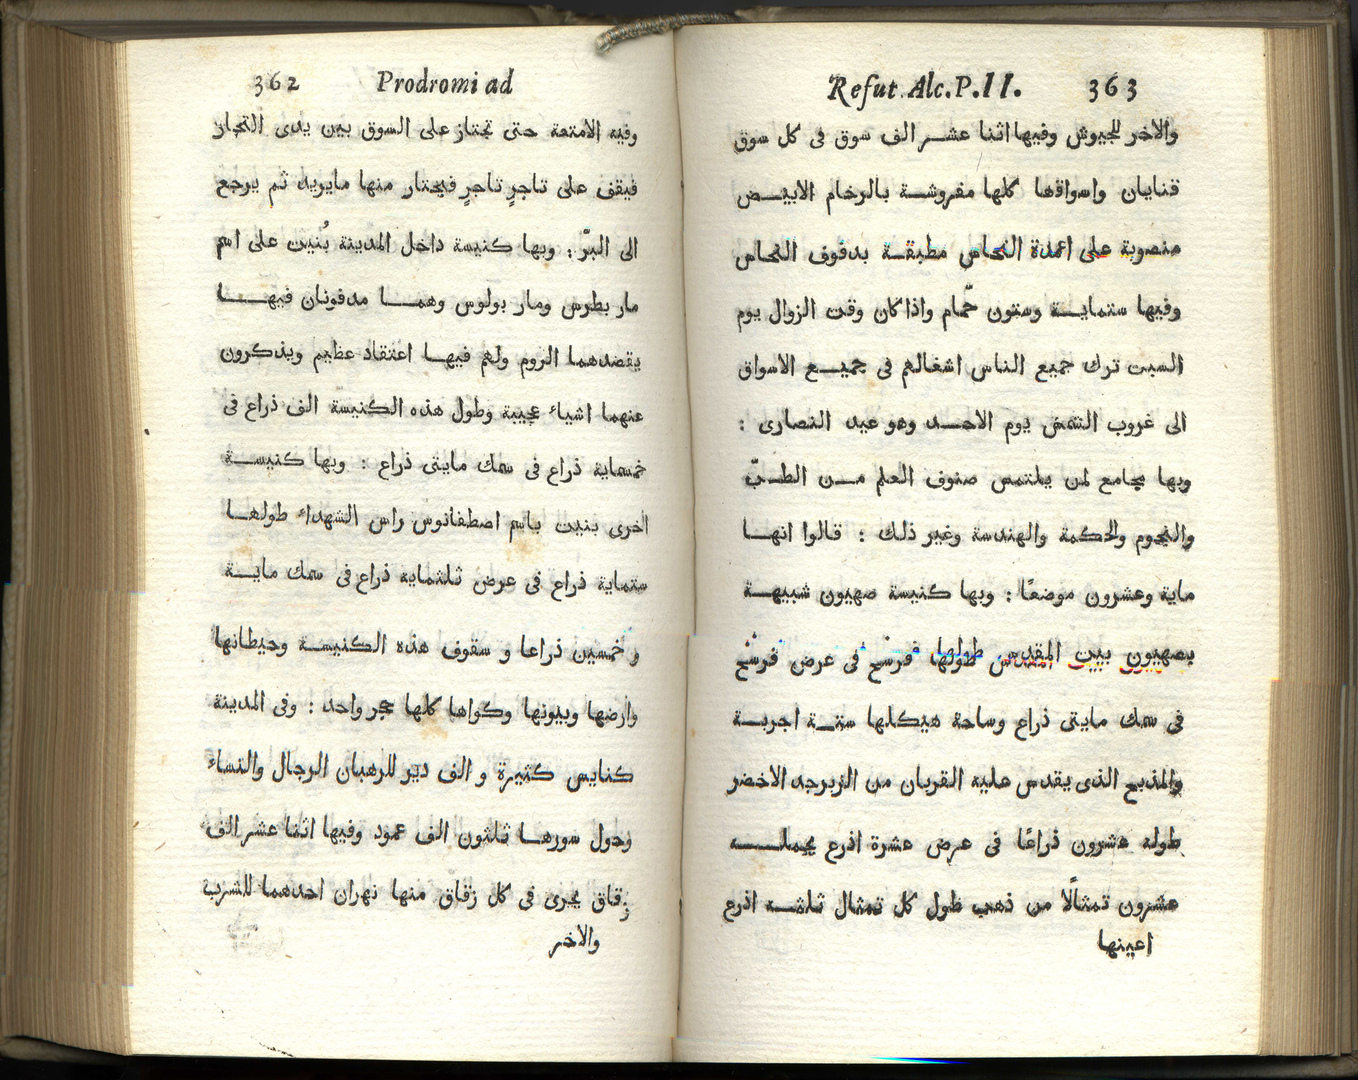 362 Prodromi ad
وفيه الامتعة حتى تجتاز على السوق بين يدى التجار
فيقف على تاجرٍ تاجرٍ فيختار منها مايريد ثم يرجع
الى البرّ : وبها كنيسة داخل المدينة بُنيت على اسم
مار بطرس ومار بولوس وهما مدفونان فيها
يقصدهما الروم ولهم فيها اعتقاد عظيم ويذكرون
عنهما اشياء عجيبة وطول هذه الكنيسة الف ذراع فى
خمسماية ذراع فى سمك مايتى ذراع : وبها كنيسة
اخرى بنيت باسم اصطفانوس راس الشهداء طولها
ستماية ذراع فى عرض ثلثماية ذراع فى سمك ماية
و خمسين ذراعا و سقوف هذه الكنيسة وحيطانها
وارضها وبيوتها وكواها كلها حجر واحد : وفى المدينة
كنايس كثيرة و الف دير للرهبان الرجال والنساء
وحول سورها ثلثون الف عمود وفيها اثنا عشر الف
زقاق يجرى فى كل زقاق منها نهران احدهما للشرب
والاخر
Refut. Alc. P. II. 363
والاخر للجيوش وفيها اثنا عشر الف سوق فى كل سوق
قنايان واسواقها كلها مفروشة بالرخام الابيض
منصوبة على اعمدة النحاس مطبقة بدفوف النحاس
وفيها ستماية وستون حمّام واذا كان وقت الزوال يوم
السبت ترك جميع الناس اشغالهم فى جميع الاسواق
الى غروب الشمس يوم الاحد وهو عيد النصارى :
وبها مجامع لمن يلتمس صنوف العلم من الطبّ
والنجوم والحكمة والهندسة وغير ذلك : قالوا انها
ماية وعشرون موضعًا : وبها كنيسة صهيون شبيهة
بصهيون بيت المقدس طولها فرسخ فى عرض فرسخ
فى سمك مايتى ذراع وساحة هيكلها ستة اجربة
والمذبح الذى يقدس عليه القربان من الزبرجد الاخضر
طوله عشرون ذراعًا فى عرض عشرة اذرع يحمله
عشرون تمثالًا من ذهب طول كل تمثال ثلثه اذرع
اعينها